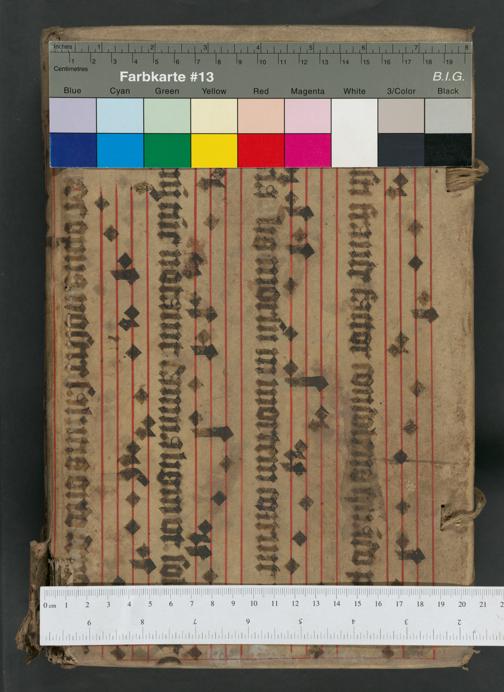 Inches 1 2 3 4 5 6 7 8
Centimetres 1 2 3 4 5 6 7 8 9 10 11 12 13 14 15 16 17 18 19
Farbkarte #13 B.I.G.
Blue Cyan Green Yellow Red Magenta White 3/Color Black
fraude factor condolens
lis morsu in mortem corruit
notauit damna ligni
opus nostre salutis ordo
0 cm 1 2 3 4 5 6 7 8 9 10 11 12 13 14 15 16 17 18 19 20 21
9 8 7 6 5 4 3 2